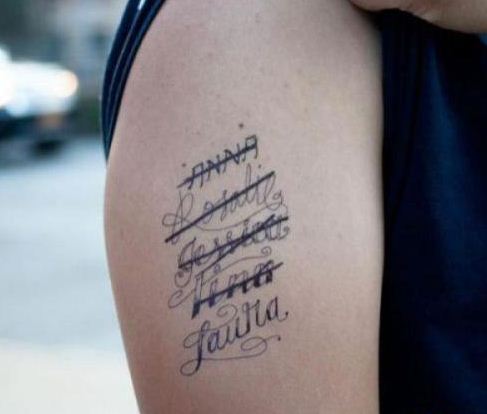 ANNA
Rosalie
Jessica
Tina
Laura